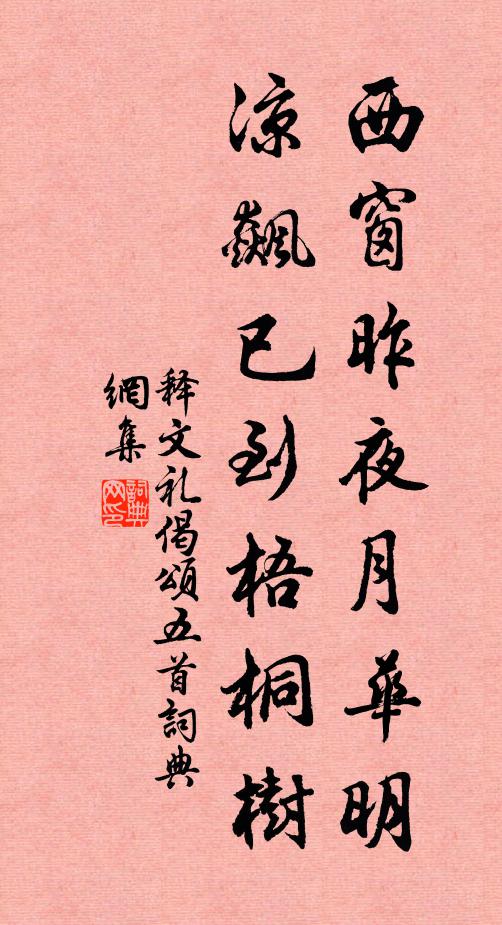 西窗昨夜月華明
凉飆已到梧桐樹
释文礼偈頌五首詞典
網集
詞典网印